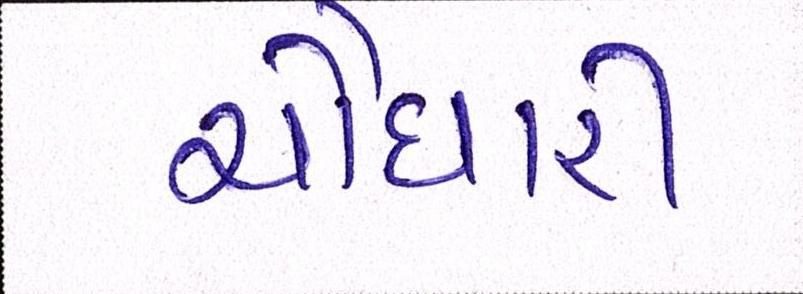 ચૌધારી